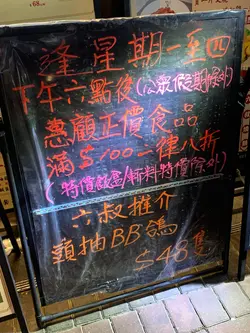 逢星期一至四
下午六點後(公眾假期除外)
惠顧正價食品
滿$100一律八折
(特價飲品/特價除外)
六叔推介
頭抽BB鴿
$48隻